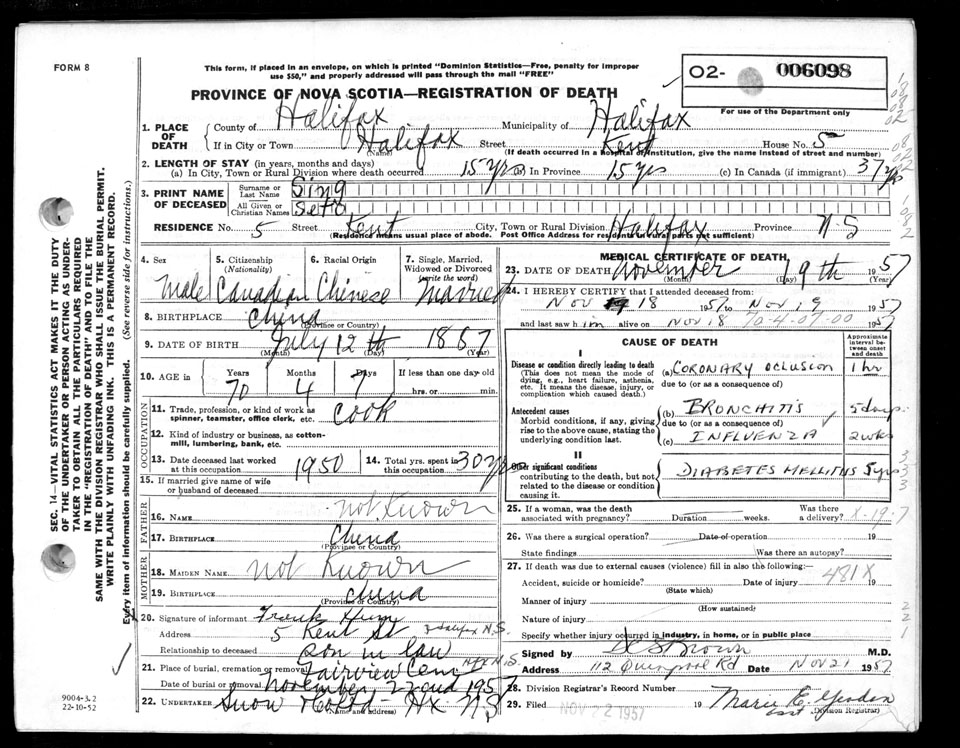 FORM 8
This form, if placed in an envelope, on which is printed "Dominion Statistics—Free, penalty for improper
use $50," and properly addressed will pass through the mail "FREE"
O2- 006098
For use of the Department only
PROVINCE OF NOVA SCOTIA—REGISTRATION OF DEATH
1. PLACE OF DEATH { County of Halifax Municipality of Halifax
If in City or Town Halifax (Name) Street Kent House No. 5
(If death occurred in a hospital or institution, give the name instead of street and number)
2. LENGTH OF STAY (in years, months and days)
(a) In City, Town or Rural Division where death occurred 15 yrs (b) In Province 15 yrs (c) In Canada (if immigrant) 37 yrs
3. PRINT NAME OF DECEASED { Surname or Last Name Sing
All Given or Christian Names Seto
RESIDENCE No. 5 Street Kent City, Town or Rural Division Halifax Province N S
(Residence means usual place of abode. Post Office Address for residents in rural parts not sufficient)
4. Sex Male
5. Citizenship (Nationality) Canadian
6. Racial Origin Chinese
7. Single, Married, Widowed or Divorced (write the word) Married
8. BIRTHPLACE China
(Province or Country)
9. DATE OF BIRTH July 12 th 1887
(Month) (Day) (Year)
10. AGE in { Years 70 Months 4 Days 7 If less than one day old
hrs. or min.
OCCUPATION
11. Trade, profession, or kind of work as
spinner, teamster, office clerk, etc. Cook
12. Kind of industry or business, as cotton-
mill, lumbering, bank, etc.
13. Date deceased last worked
at this occupation 1950
14. Total yrs. spent in
this occupation 30 yrs
15. If married give name of wife
or husband of deceased
FATHER
16. NAME not Known
17. BIRTHPLACE China
(Province or Country)
MOTHER
18. MAIDEN NAME not Known
19. BIRTHPLACE China
(Province or Country)
X 20. Signature of informant Frank Hum
Address 5 Kent St Halifax N.S.
Relationship to deceased son in law
21. Place of burial, cremation or removal Fairview Cem Hfx N.S.
Date of burial or removal November 22nd 1957
22. UNDERTAKER Snow Hx N S
(Name and address)
MEDICAL CERTIFICATE OF DEATH
23. DATE OF DEATH November 19 th 1957
(Month) (Day) (Year)
24. I HEREBY CERTIFY that I attended deceased from:
Nov 18 1957 to Nov 19 1957
and last saw him alive on Nov 18 70-4-07-00 1957
CAUSE OF DEATH
Approximate
interval be-
tween onset
and death
I
Disease or condition directly leading to death
(This does not mean the mode of
dying, e.g., heart failure, asthenia,
etc. It means the disease, injury, or
complication which caused death.)
(a) CORONARY OCLUSION 1 hr
due to (or as a consequence of)
Antecedent causes
Morbid conditions, if any, giving
rise to the above cause, stating the
underlying condition last.
(b) BRONCHITIS 5 days
due to (or as a consequence of)
(c) INFLUENZA 2 wks
II
Other significant conditions
contributing to the death, but not
related to the disease or condition
causing it.
DIABETES MELLITUS 5 yrs
25. If a woman, was the death
associated with pregnancy? Duration weeks. Was there
a delivery? X-19-7
26. Was there a surgical operation? Date of operation 19
State findings Was there an autopsy?
27. If death was due to external causes (violence) fill in also the following:—
Accident, suicide or homicide? Date of injury 19
481X
(State which)
Manner of injury
(How sustained)
Nature of injury
Specify whether injury occurred in industry, in home, or in public place
Signed by Brown M.D.
Address 112 Quinpool Rd Date Nov 21 1957
28. Division Registrar's Record Number
29. Filed NOV 22 1957 19 Marie E.
(Division Registrar)
SEC. 14—VITAL STATISTICS ACT MAKES IT THE DUTY
OF THE UNDERTAKER OR PERSON ACTING AS UNDER-
TAKER TO OBTAIN ALL THE PARTICULARS REQUIRED
IN THE "REGISTRATION OF DEATH" AND TO FILE THE
SAME WITH THE DIVISION REGISTRAR WHO SHALL ISSUE THE BURIAL PERMIT.
WRITE PLAINLY WITH UNFADING INK. THIS IS A PERMANENT RECORD.
Every item of information should be carefully supplied. (See reverse side for instructions.)
9004-3.2
22-10-52